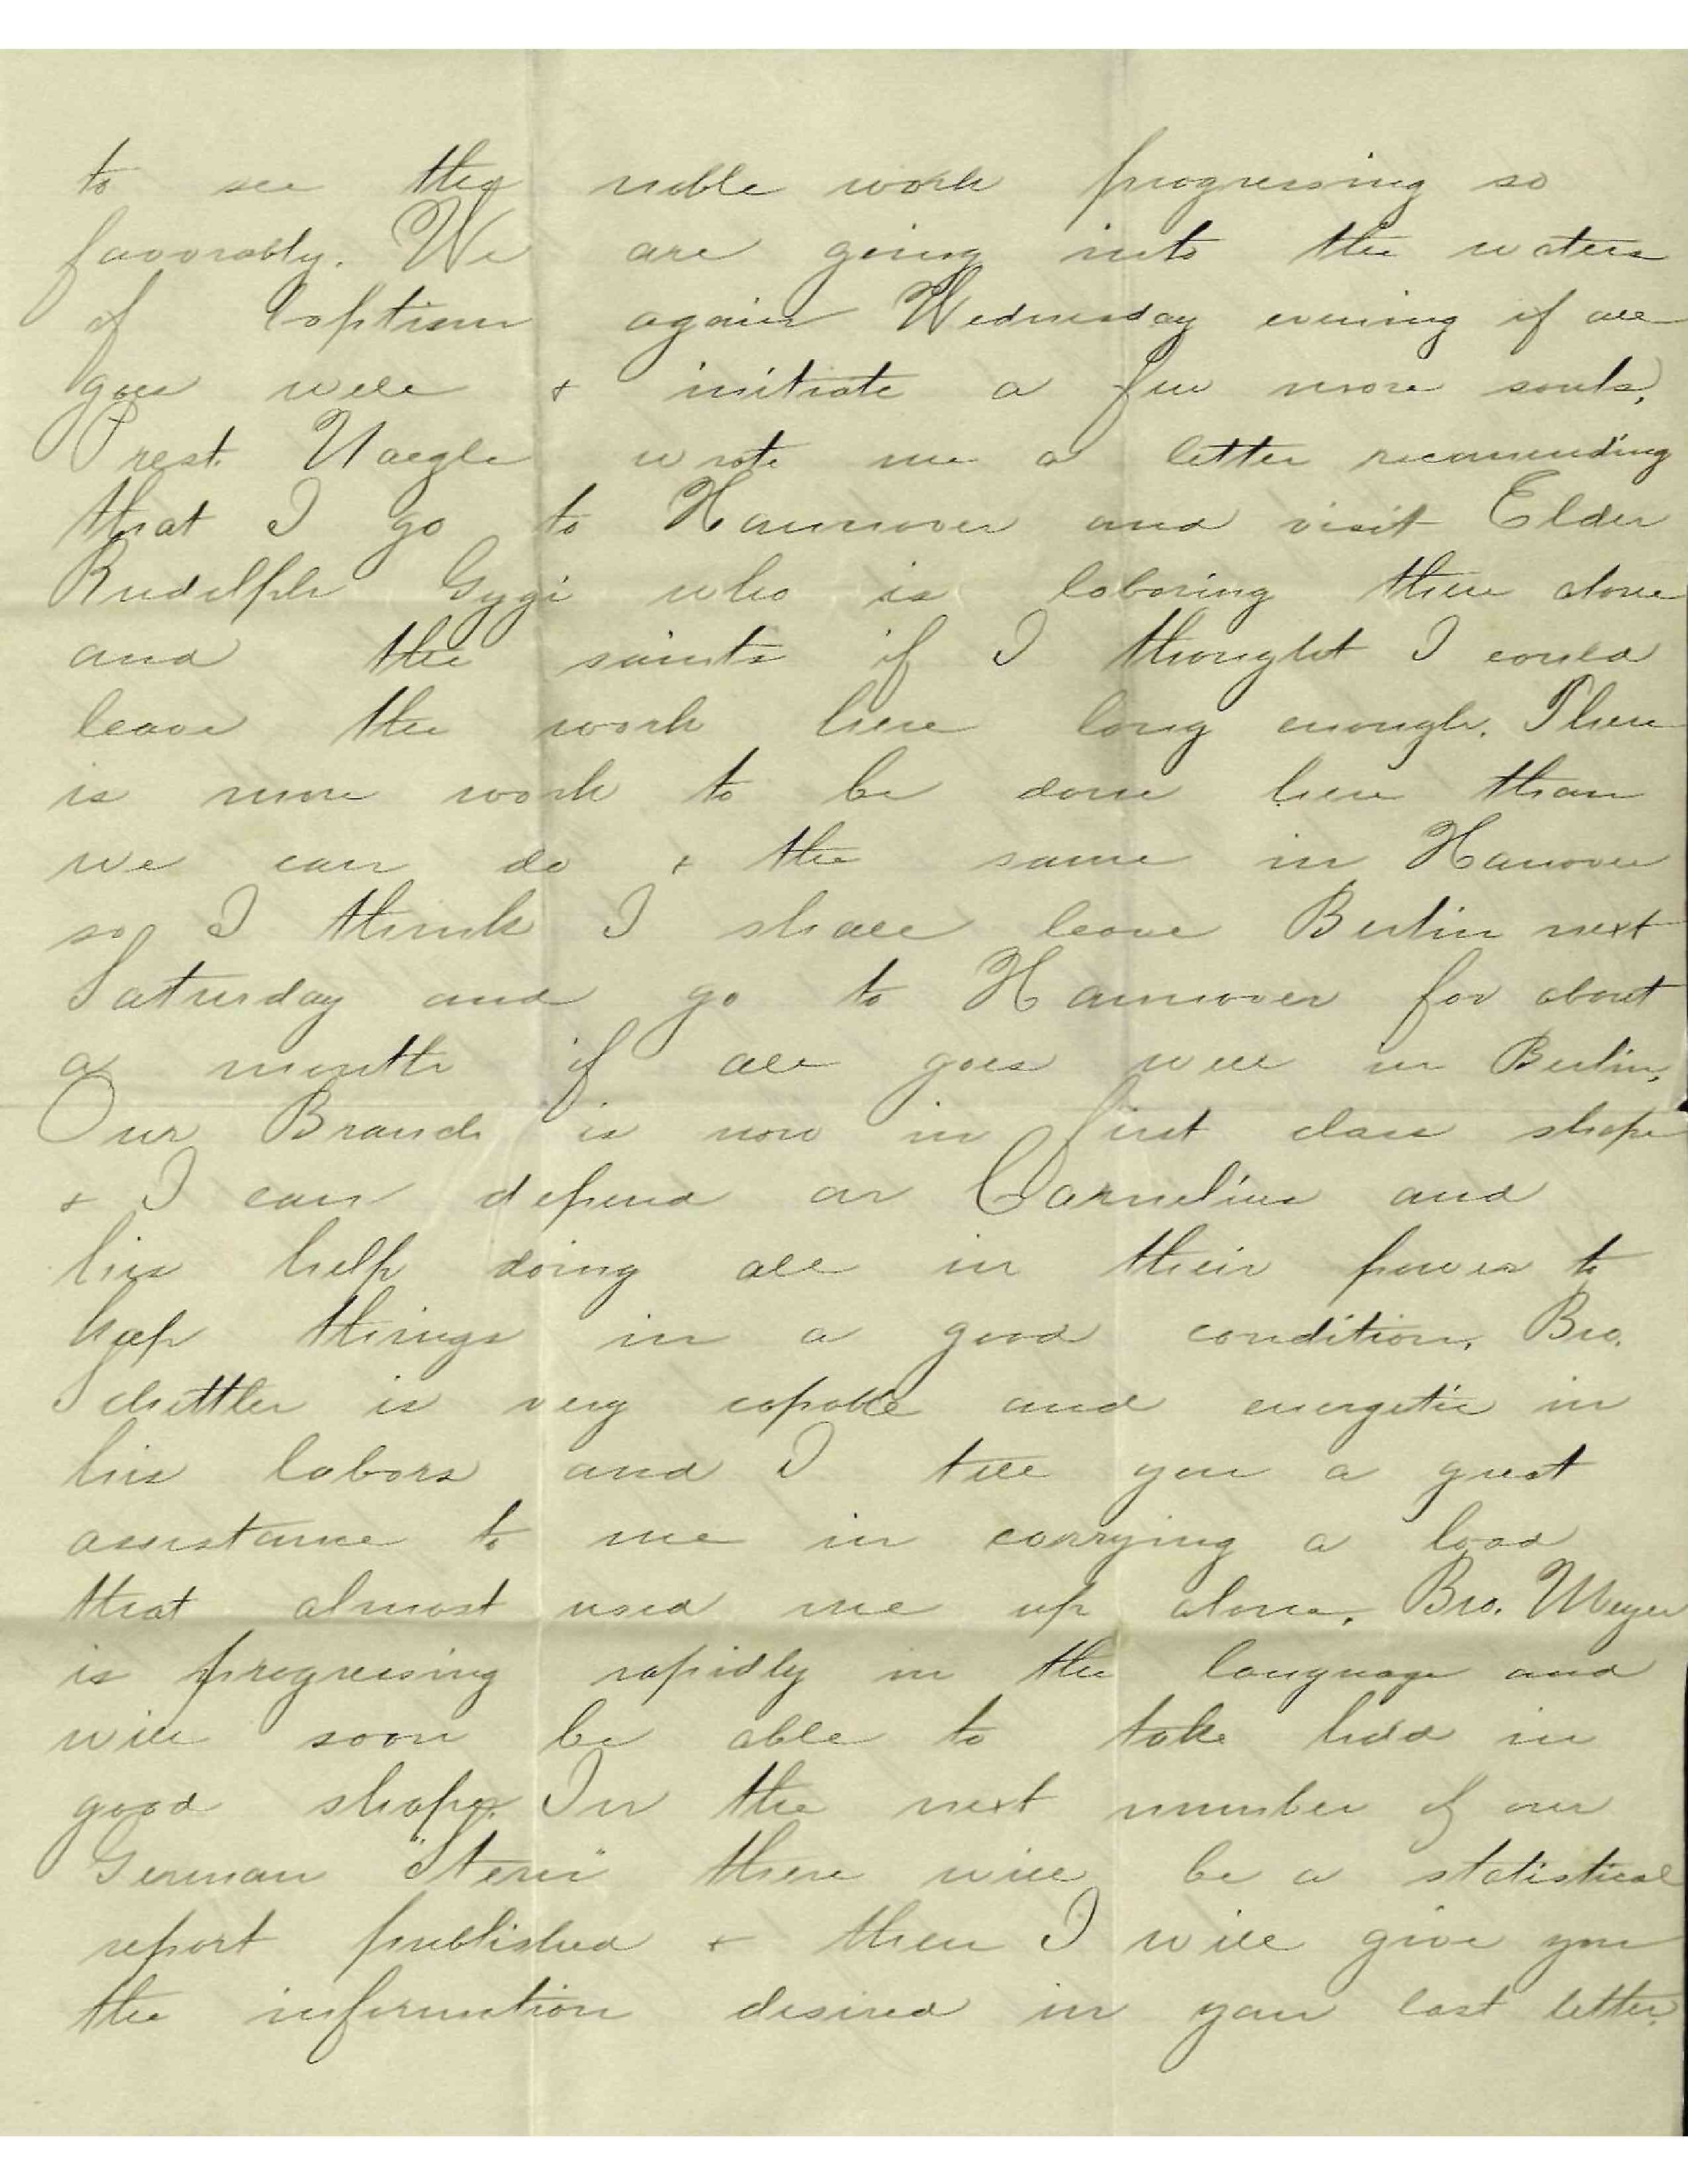 to see the noble work progressing so
favorably. We are going into the waters
of baptism again Wednesday evening if all
goes well + initiate a few more souls.
Prest. Naegle wrote me a letter recomending
that I go to Hannover and visit Elder
Rudolph Gygi who is laboring there alone
and the saints if I thought I could
leave the work here long enough. There
is more work to be done here than
we can do + the same in Hanover
so I think I shall leave Berlin next
Saturday and go to Hannover for about
a month if all goes well in Berlin.
Our Branch is now in first class shape
+ I can depend on Cornelius and
his help doing all in their power to
keep things in a good condition. Bro.
Schettler is very capable and energetic in
his labors and I tell you a great
assistance to me in carrying a load
that almost used me up alone. Bro. Meyer
is progressing rapidly in the language and
will soon be able to take hold in
good shape. In the next number of our
German "Stern" there will be a statistical
report published + then I will give you
the information desired in your last letter.